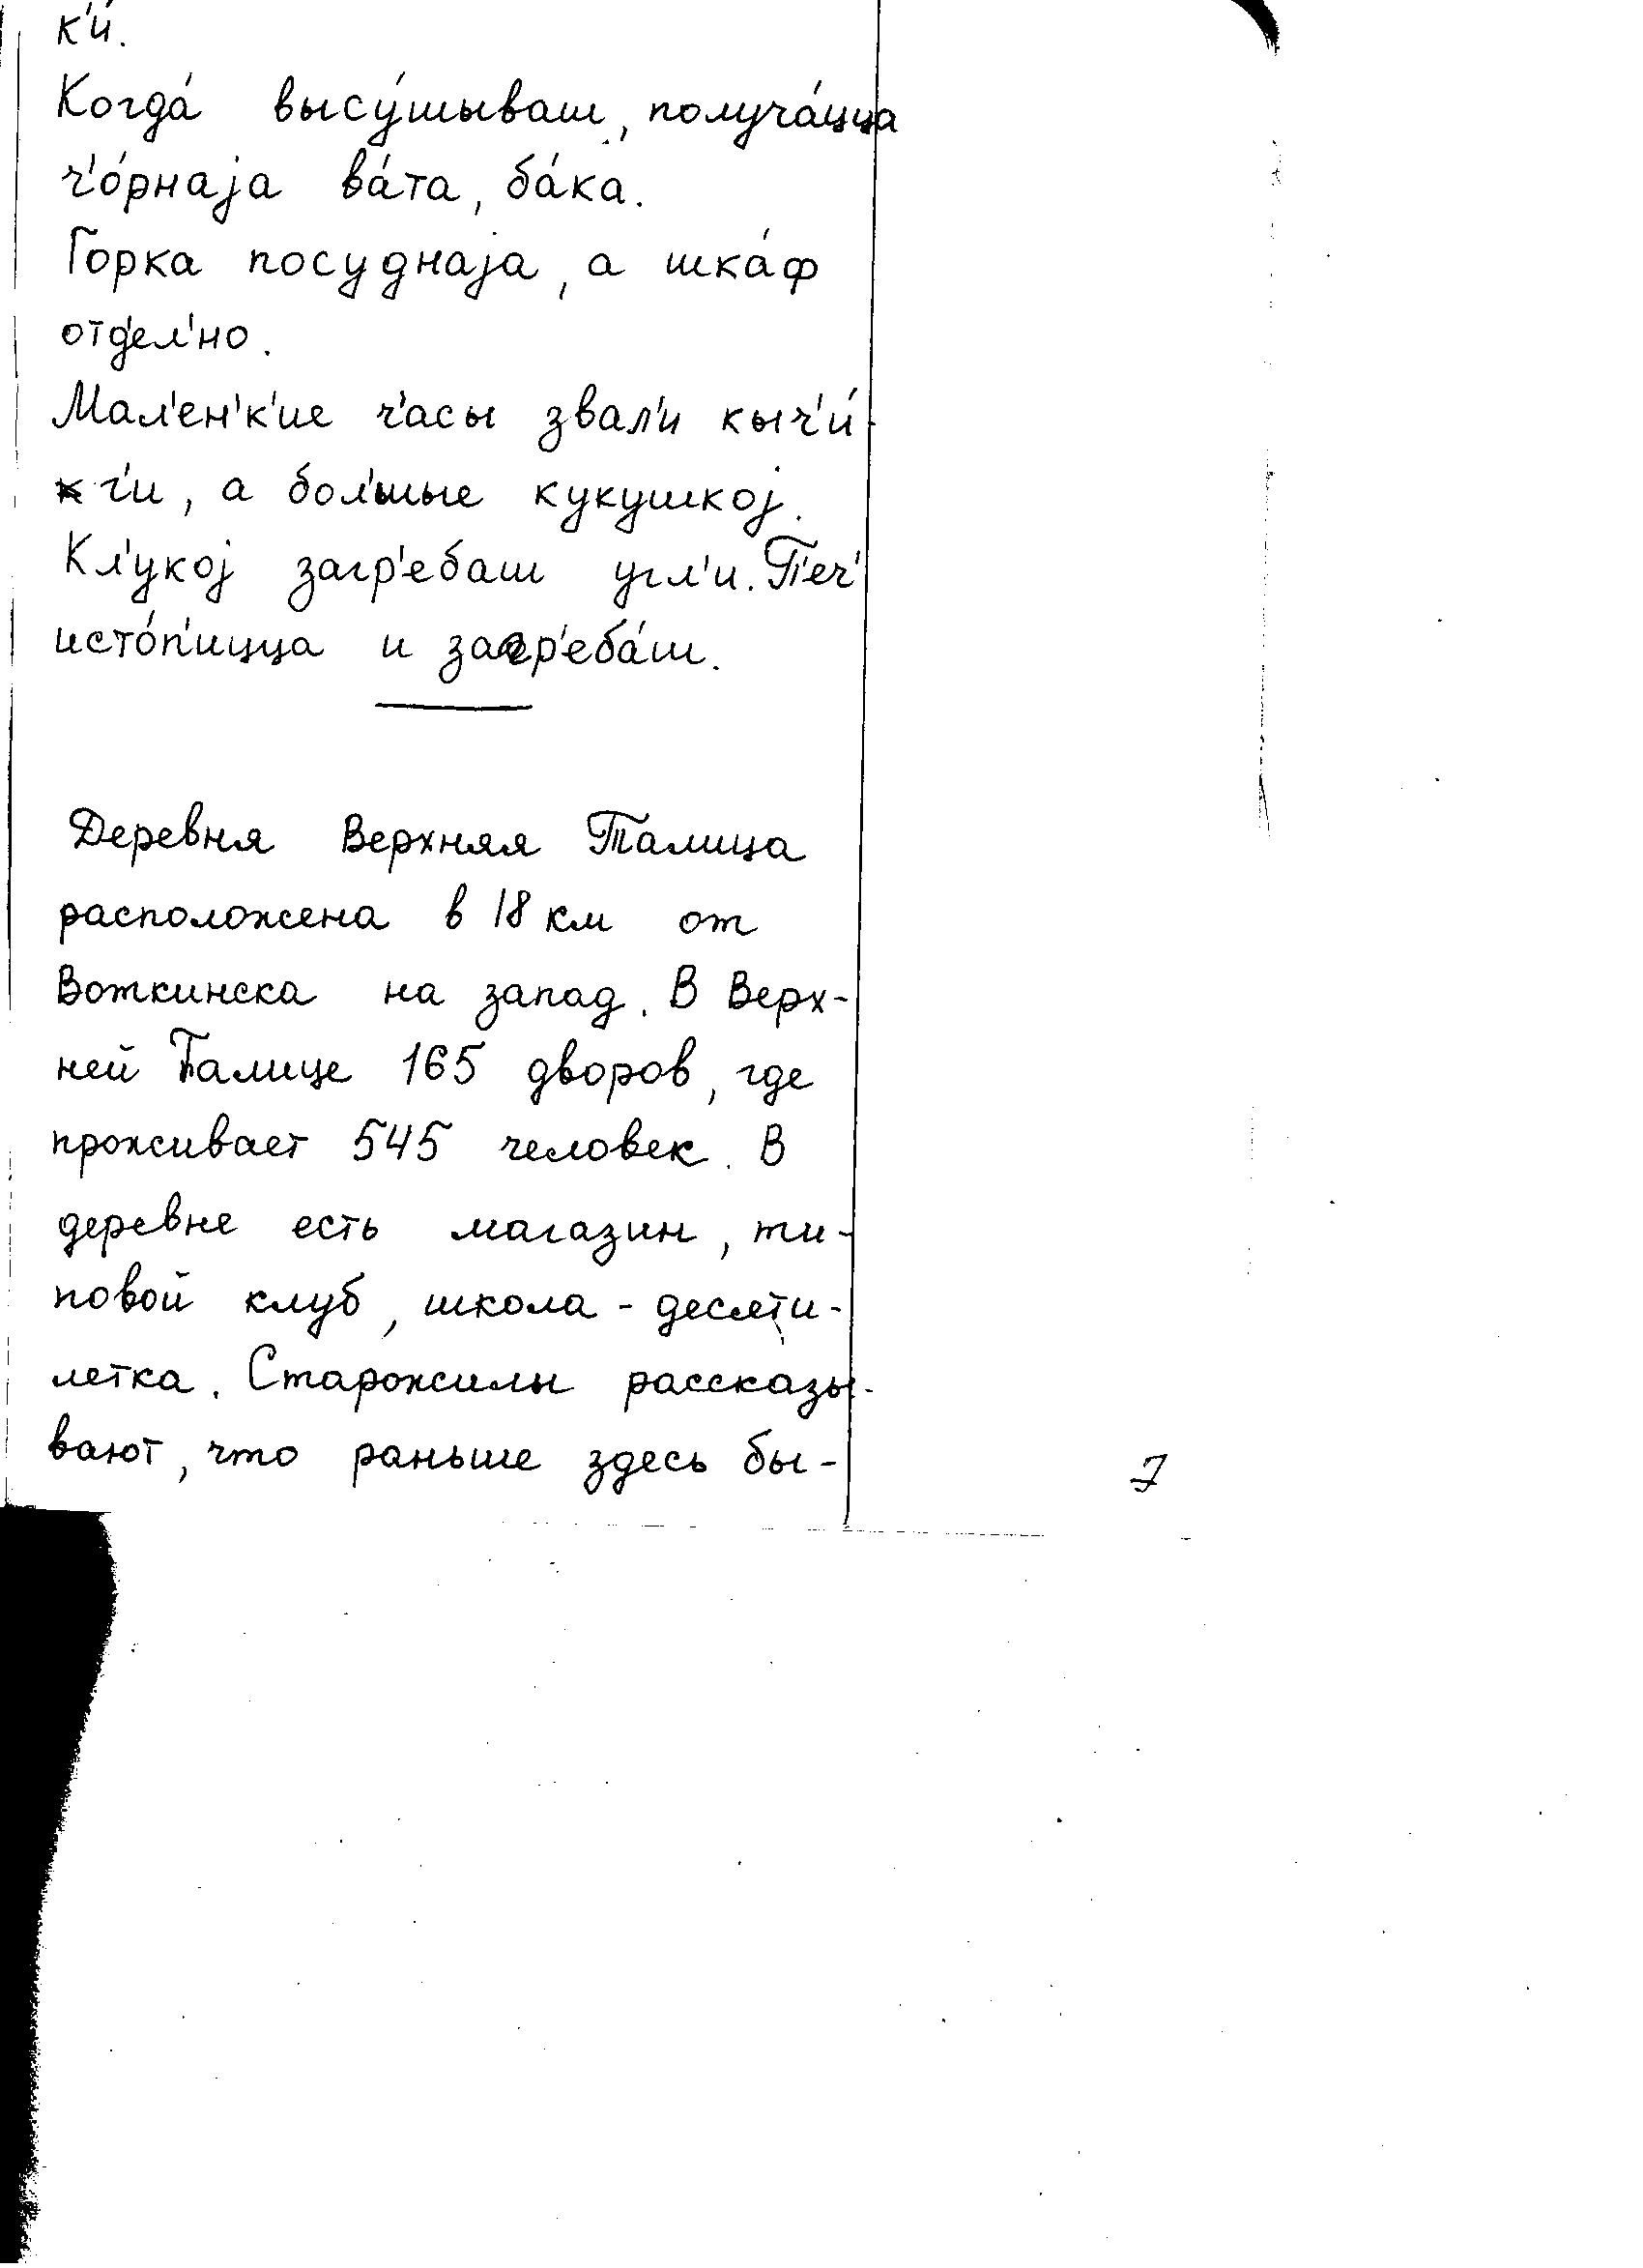 к'и́.
Когда́ высу́шываш, получа́цца
ч'о́рнаjа ва́та, ба́ка.
Горка посуднаjа, а шка́ф
отд'ел'но.
Мал'ен'к'ие ч'асы звал'и кыч'и́-
г'и, а бол'шые кукушкоj.
Кл'укоj загр'ебаш угл'и. П'еч'
исто́п'ицца и загр'еба́ш.
Деревня Верхняя Талица
расположена в 18 км от
Воткинска на запад. В Верх-
ней Талице 165 дворов, где
проживает 545 человек. В
деревне есть магазин, ти-
повой клуб, школа - десяти-
летка. Старожилы рассказы-
вают, что раньше здесь бы-
7